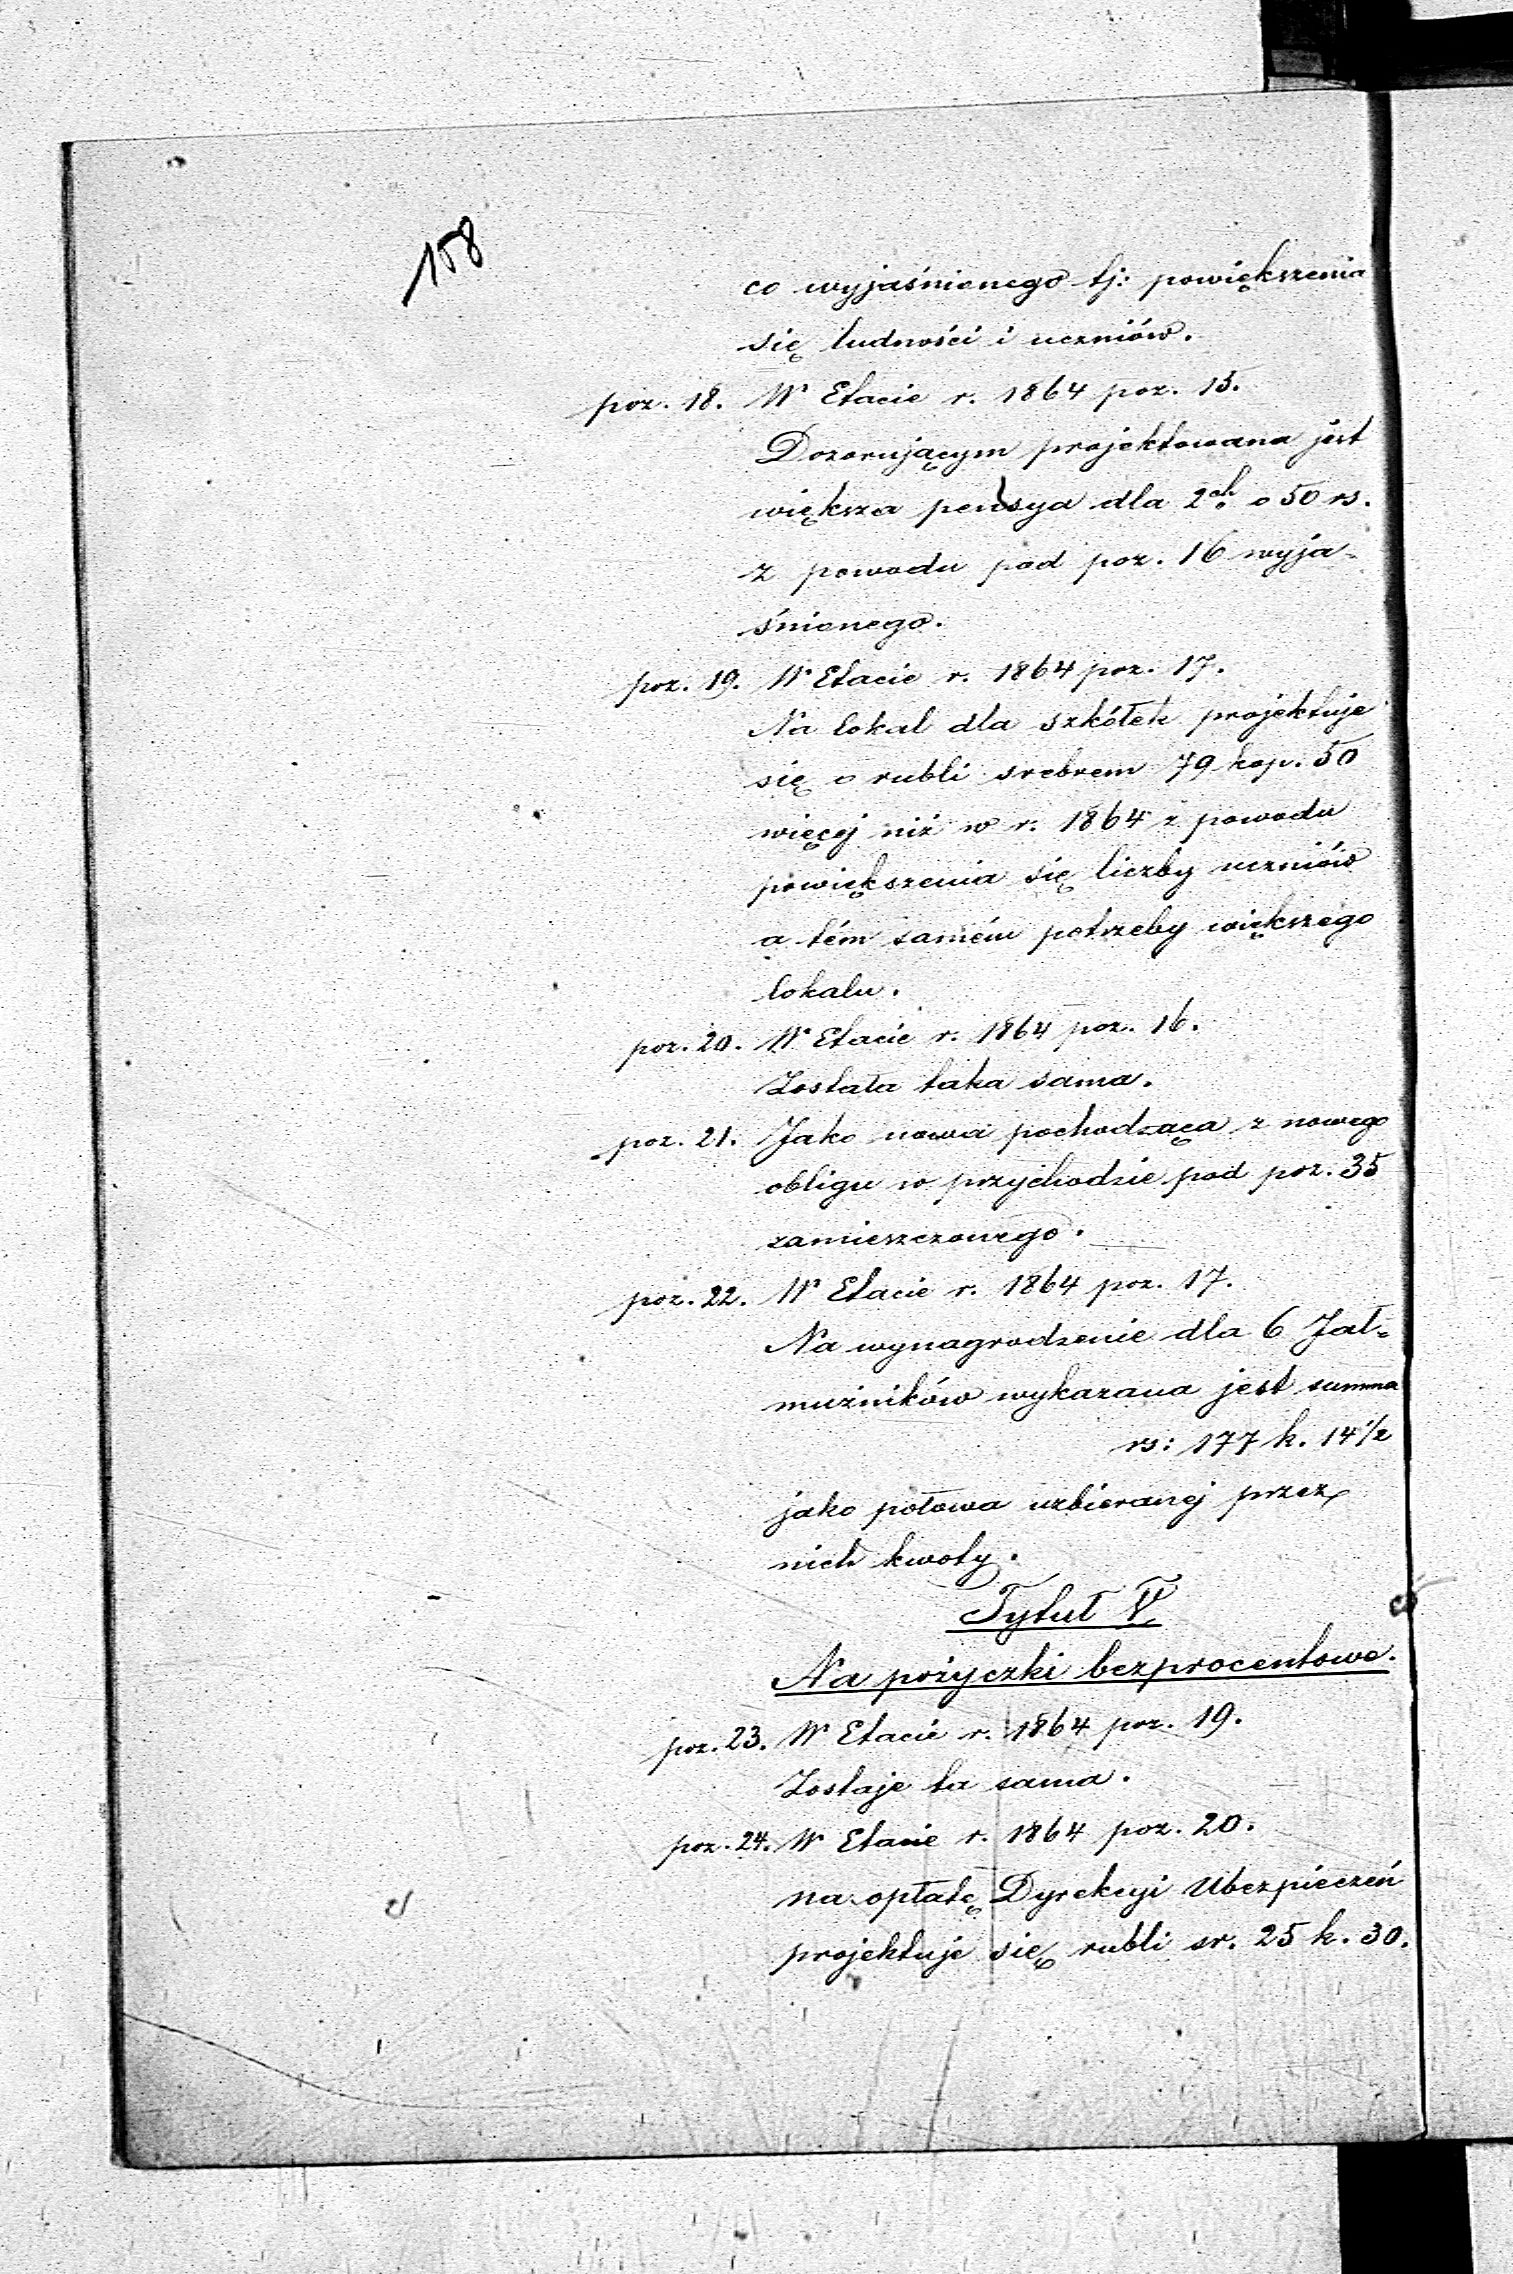 158
co wyjaśnionego tj: powiększenia
się ludności i uczniów.
poz. 18. W Etacie r. 1864 poz. 15.
Dozorującym projektowana jest
większa pensya dla 2ch o 50 rs.
z powodu pod poz. 16 wyja-
śnionego.
poz. 19. W Etacie r. 1864 poz. 17.
Na lokal dla szkółek projektuje
się o rubli srebrem 79 kop. 50
więcej niż w r. 1864 z powodu
powiększenia się liczby uczniów
a tém samém potrzeby większego
lokalu.
poz. 20. W Etacie r. 1864 poz. 16.
Została taka sama.
poz. 21. Jako nowa pochodząca z nowego
obligu w przychodzie pod poz. 35
zamieszczonego.
poz. 22. W Etacie r. 1864 poz. 17.
Na wynagrodzenie dla 6 Jał-
mużników wykazana jest summa
rs: 177 k. 14 1/2
jako połowa uzbieranej przez
nich kwoty.
Tytuł V
Na pożyczki bezprocentowe.
poz. 23. W Etacie r. 1864 poz. 19.
Zostaje ta sama.
poz. 24. W Etacie r. 1864 poz. 20.
na opłatę Dyrekcyi Ubezpieczeń
projektuje się rubli sr. 25 k. 30.